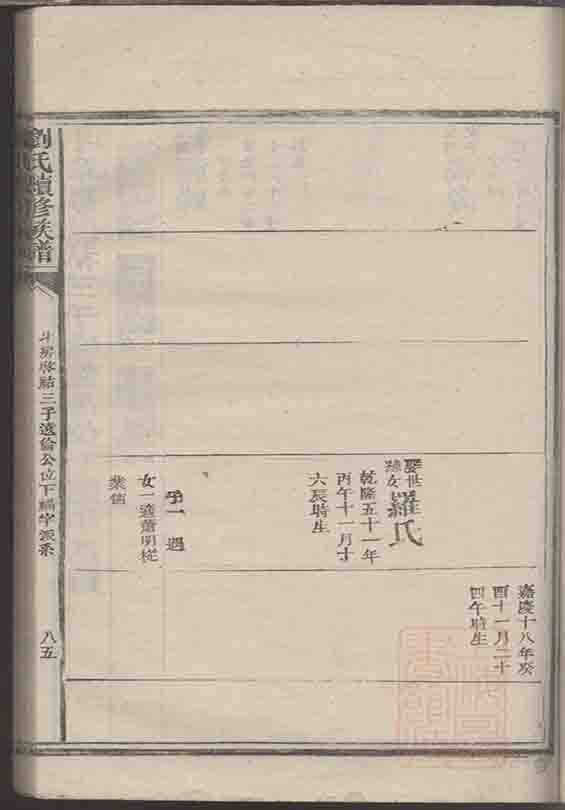 嘉慶十八年癸
酉十一月二十
四午時生
娶世
孫女
羅氏
乾隆五十一年
丙午十一月十
六辰時生
子一 遇
女一適蕭明從
業儒
劉氏續修族譜
斗房啓結三子遠倫公位下編字派系
八五